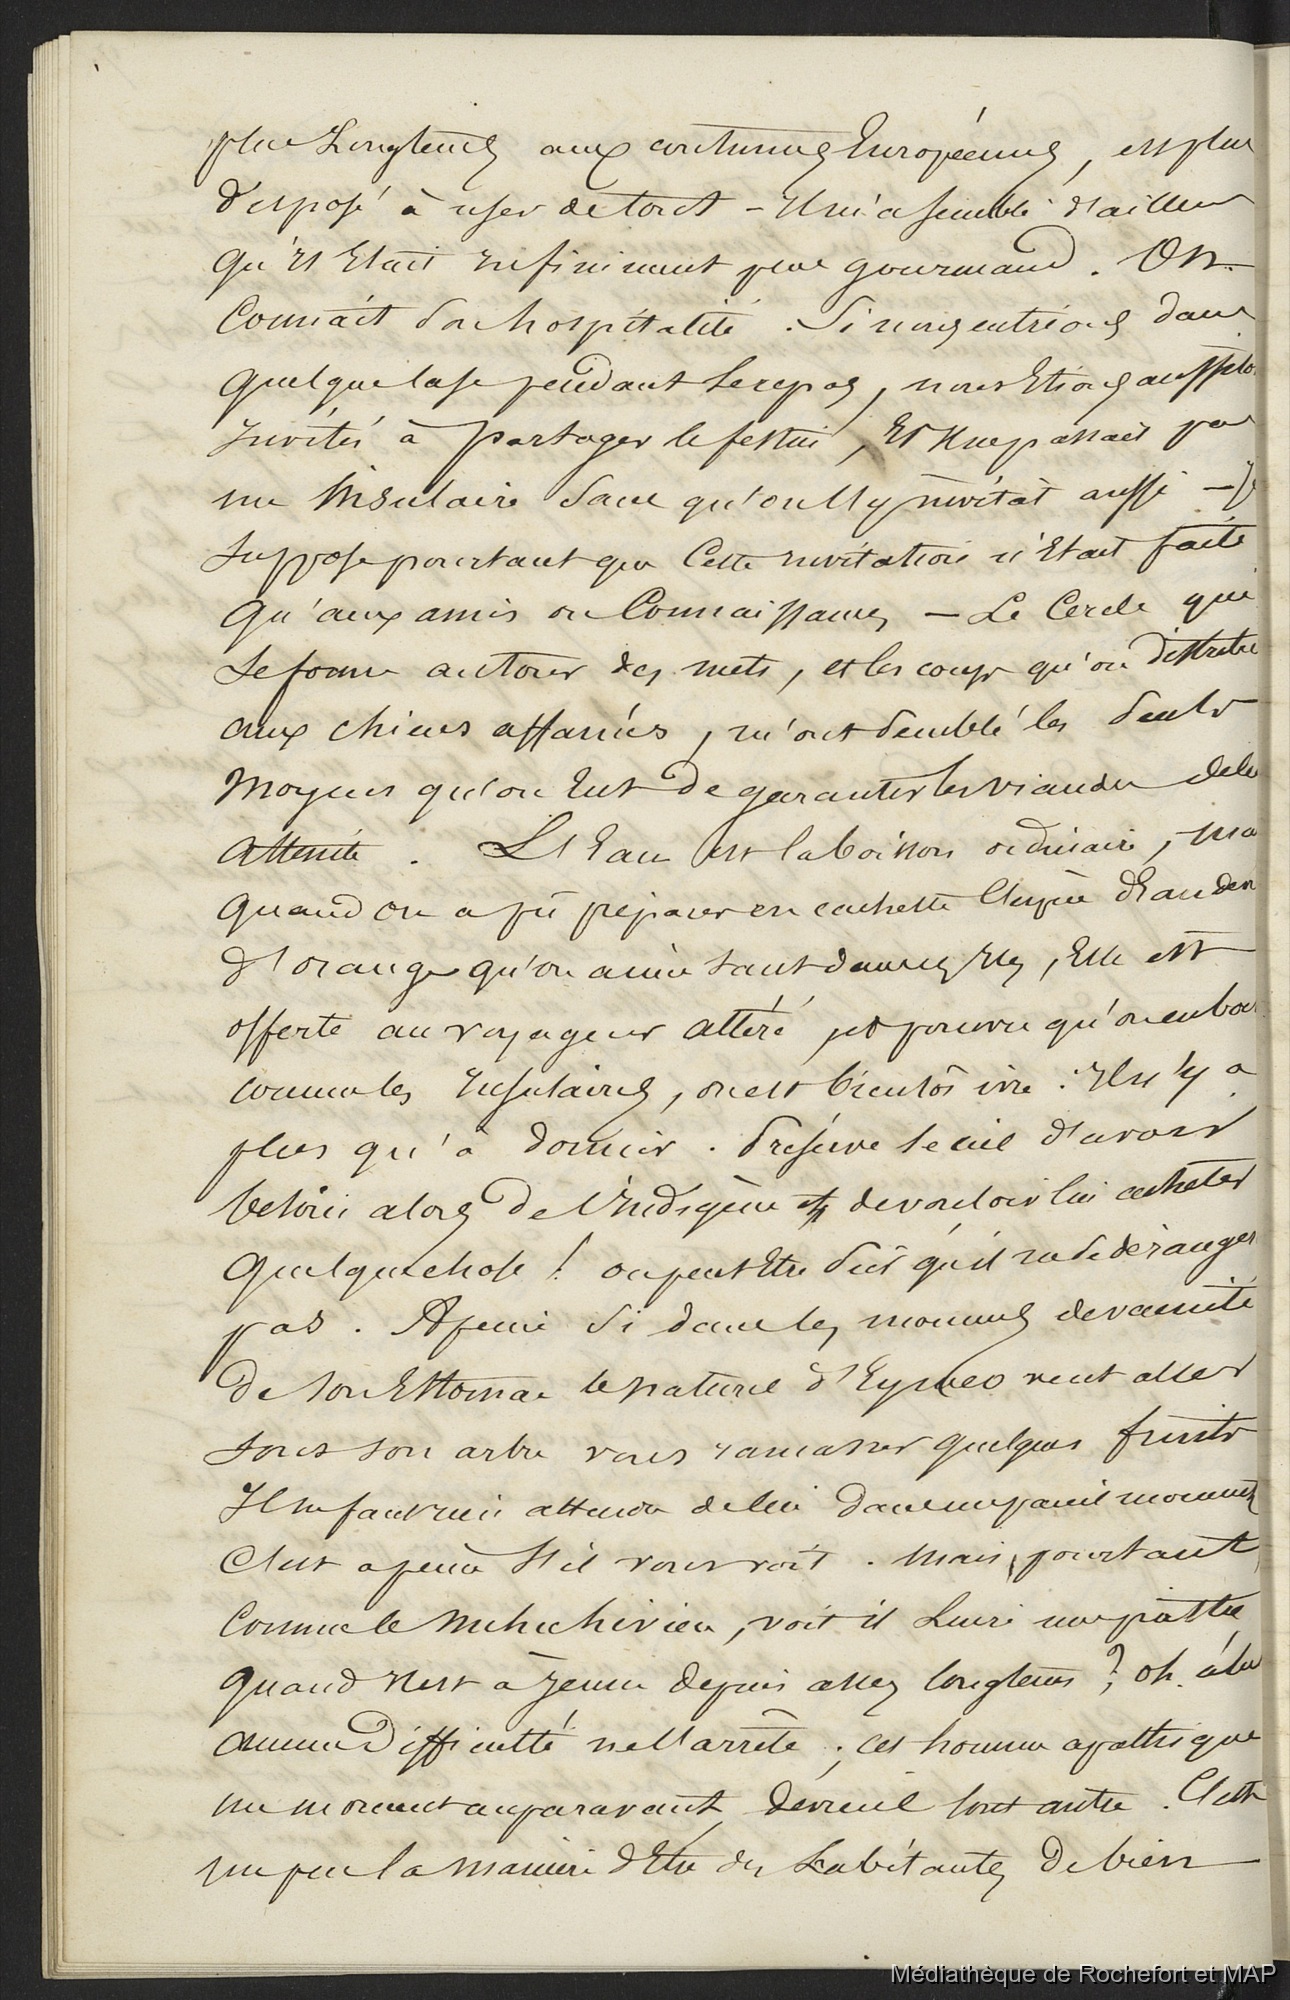 plus Longtems aux coutumes Européennes, est plus
disposé à user de tout – Il m'a semblé d'ailleurs
qu'Il Etait Infiniment peu gourmand. On
Connait son hospitalité. Si nous entrions dans
quelque Case pendant le repas, nous Etions aussito
Invités à partager le festin, Et Il ne passait pas
un Insulaire sans qu'on l'ly invitât aussi – Je
Suppose pourtant que Cette invitation n'Etait faite
qu'aux amis ou Connaissances – Le Cercle qui
se forme autour des mets, et les coups qu'on distribue
aux chiens affamés, m'ont semblé les seuls
Moyens qu'on Eut de garantir les viandes de leu
atteinte. L'Eau est la boisson ordinaire, ma
quand on a pu préparer en cachette l'espèce d'Eau de vi
d'orange qu'on aime tant dans ces Iles, Elle est
offerte au voyageur altéré, et pourvu qu'on en boi
comme les Insulaires, on est bientôt ivre : Il n'y a
plus qu'à dormir. Préserve le ciel d'avoir
besoin alors de l'Indigène et de vouloir lui acheter
quelque chose ! on peut Etre sûr qu'il ne se déranger
pas. A peine si dans les momens de vacuité
de son Estomac le naturel d'Eymeo veut aller
sous son arbre vous ramasser quelques fruits
Il ne faut rien attendre de lui dans un pareil moment
C'est a peine s'il vous voit. Mais pourtant,
Comme le Nuhuhivien, voit il Luire une piastre
quand Il est à Jeun depuis assez longtems ? oh. alor
aucune Difficulté ne l'arrête ; cet homme apathique
un moment auparavant, devient tout autre. C'est
un peu la manière d'Etre des habitants de bien